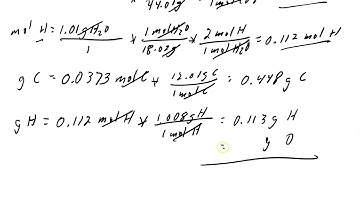 44.01g 1mol
mol H = 1.01gH₂O / 1 * 1molH₂O / 18.02g * 2molH / 1molH₂O = 0.112 mol H
g C = 0.0373 molC * 12.01gC / 1molC = 0.448g C
g H = 0.112 molH * 1.008gH / 1molH = 0.113g H
= g O